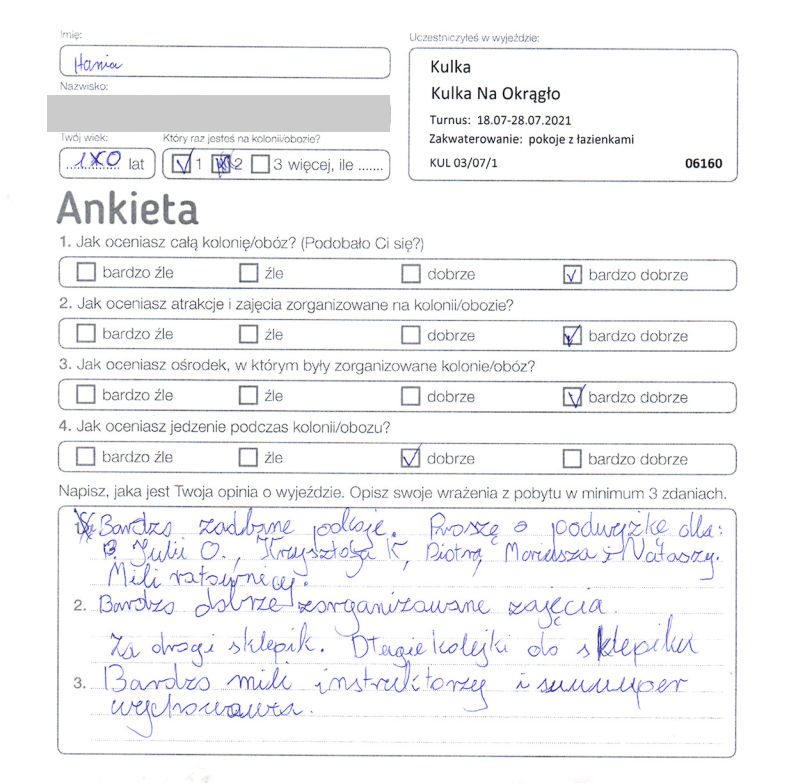 Imię:
Hania
Nazwisko:
Twój wiek:
10 lat
Który raz jesteś na kolonii/obozie?
1 2 3 więcej, ile .......
Uczestniczyłeś w wyjeździe:
Kulka
Kulka Na Okrągło
Turnus: 18.07-28.07.2021
Zakwaterowanie: pokoje z łazienkami
KUL 03/07/1 06160
Ankieta
1. Jak oceniasz całą kolonię/obóz? (Podobało Ci się?)
bardzo źle źle dobrze bardzo dobrze
2. Jak oceniasz atrakcje i zajęcia zorganizowane na kolonii/obozie?
bardzo źle źle dobrze bardzo dobrze
3. Jak oceniasz ośrodek, w którym były zorganizowane kolonie/obóz?
bardzo źle źle dobrze bardzo dobrze
4. Jak oceniasz jedzenie podczas kolonii/obozu?
bardzo źle źle dobrze bardzo dobrze
Napisz, jaka jest Twoja opinia o wyjeździe. Opisz swoje wrażenia z pobytu w minimum 3 zdaniach.
1. Bardzo zadbane pokoje. Proszę o podwyżkę dla:
P. Julii O., Krzysztofa K, Piotra, Mariusza i Nataszy.
Mili ratownicy.
2. Bardzo dobrze zorganizowane zajęcia.
Za drogi sklepik. Długie kolejki do sklepiku
3. Bardzo mili instruktorzy i suuuuper
wychowawca.